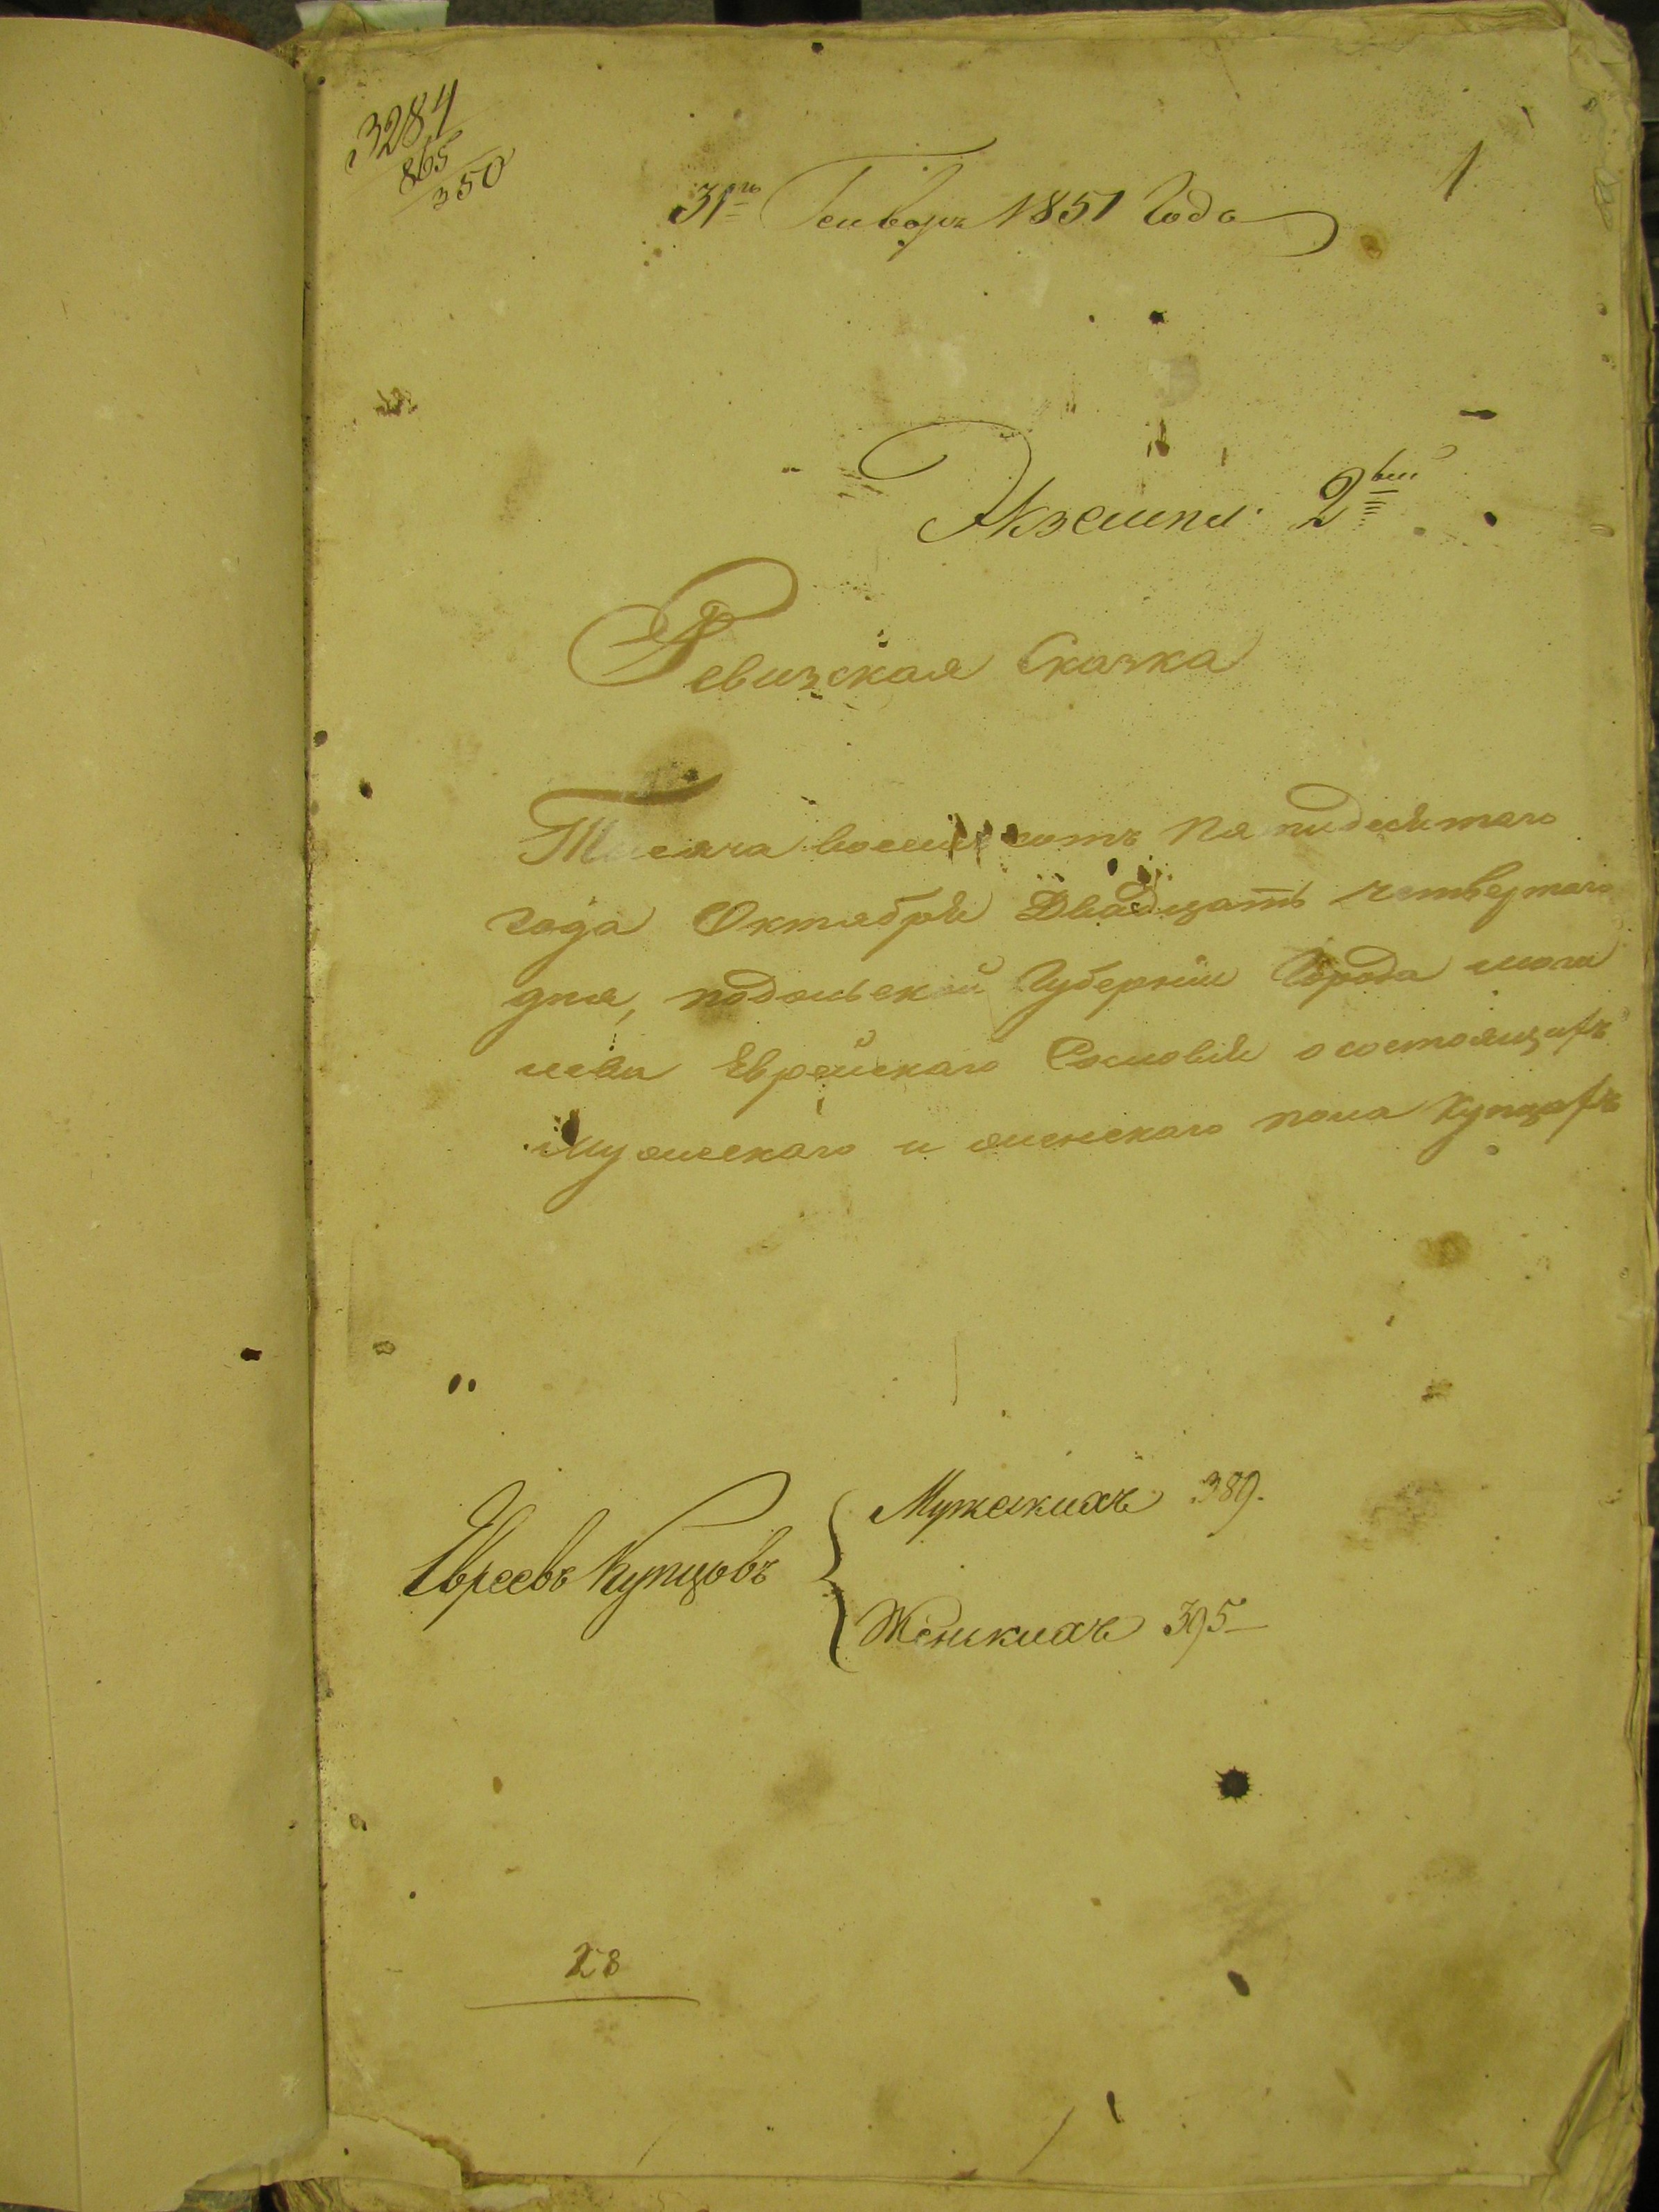 3284
865
350
1
31го Генваря 1851 Года
Экземпл. 2вый
Ревизская Сказка
Тысяча восемь сотъ Пятидесятаго
года Октября Двадцать четвертаго
дня, подольской Губернии Города моги
лева Еврейскаго Сословія о состоящихъ
мужескаго и женскаго пола Купцахъ
Евреевъ Купцовъ
Мужскихъ 389.
Женскихъ 395
28